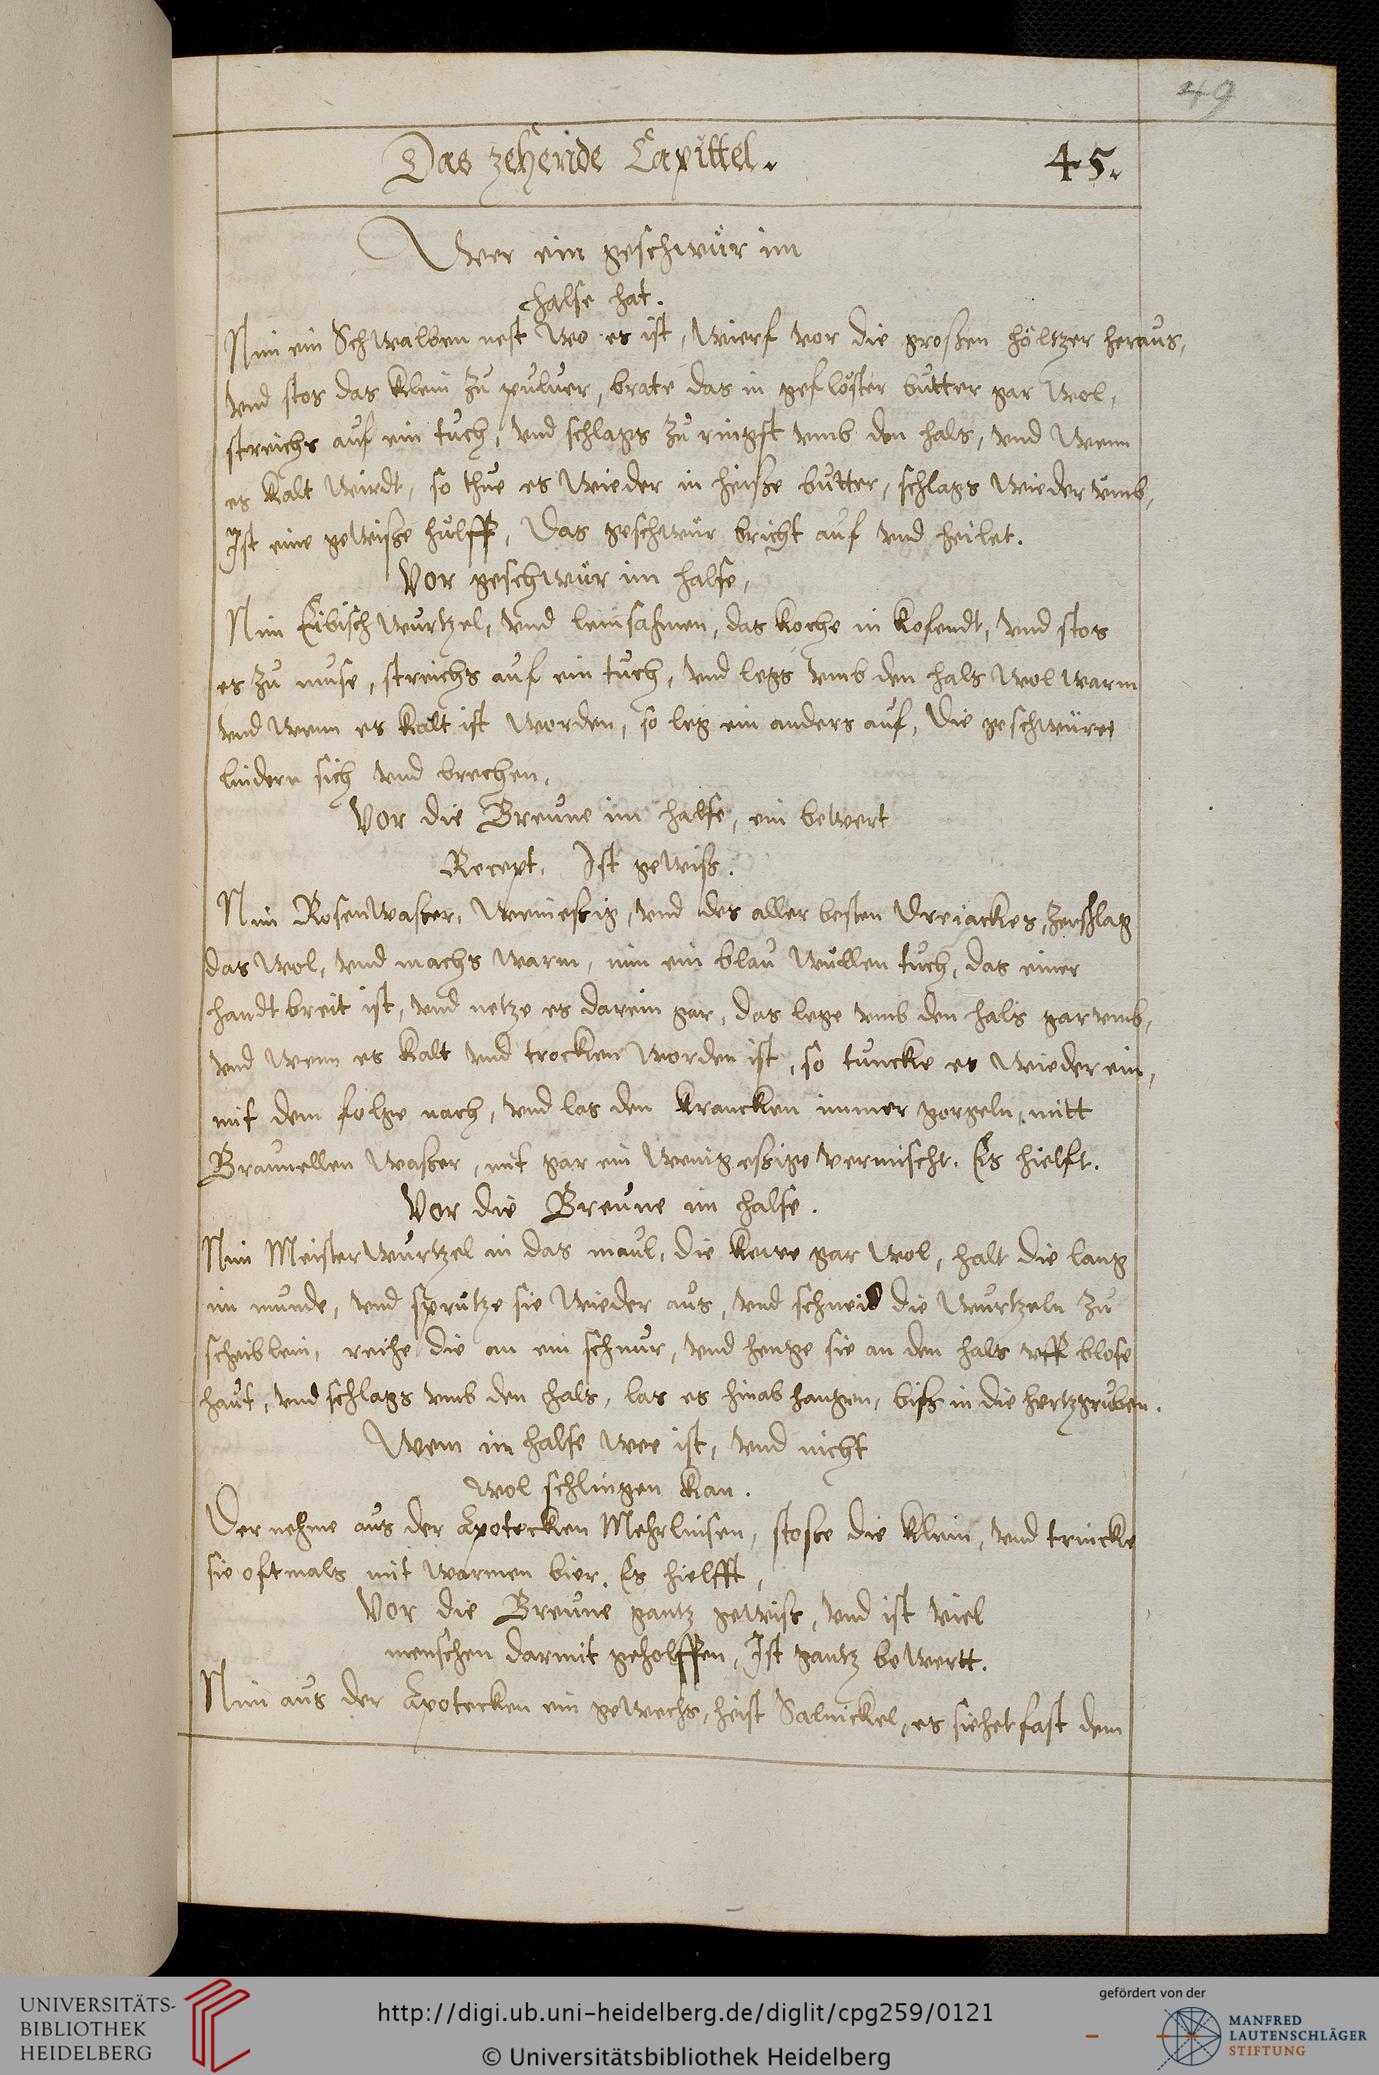 49
Das zehende Capittel. 45.
Wer ein geschwür im
halse hat.
Nim ein Schwalben nest wo es ist, wierf vor die großen höltzer heraus,
vnd stos das klein zu puluer, brate das in geflöster butter gar wol,
streichs auf ein tuch, vnd schlags zu ringst vmb den hals, vnd wenn
es kalt wirdt, so thue es wieder in heiße butter, schlags wieder vmb,
Ist eine geweiße hülff, Das geschwür bricht auf vnd heilet.
Vor geschwür im halse,
Nim Eibisch wurtzel, vnd leinsahmen, das koche in kofendt, vnd stos
es zu muse, streichs auf ein tuch, vnd legs vmb den hals wol warm
vnd wenn es kalt ist worden, so leg ein anders auf, Die geschwüre
lindern sich vnd brechen,
Vor die Breune im halse, ein bewert
Recept, Ist gewiß.
Nim Rosenwaßer, Weineßig, vnd des aller besten Dreiackes, zerschlag
das wol, vnd machs warm, nim ein blau wüllen tuch, das einer
handt breit ist, vnd netze es darein gar, das lege vmb den hals gar vmb,
vnd wenn es kalt vnd trocken worden ist, so tuncke es wieder ein,
mit dem folge nach, vnd las den krancken immer gorgeln, mitt
Braunellen waßer, mit gar ein wenig eßige vermischt. Es hielft.
Vor die Breune im halse.
Nim Meisterwurtzel in das maul, die kewe gar wol, halt die lang
im munde, vnd sprütze sie wieder aus, vnd schneid die wurtzeln zu
scheiblein, reihe die an ein schnur, vnd henge sie an den hals vff blose
haut, vnd schlags vmb den hals, las es hinab hangen, biß in die hertzgruben.
Wem im halse wee ist, vnd nicht
wol schlingen kan.
Der nehme aus der Apotecken Mehrlinsen, stoße die klein, vnd trincke
sie oftmals mit warmen bier. Es hielfft,
Vor die Breune gantz gewiß, vnd ist viel
menschen darmit geholffen, Ist gantz bewertt.
Nim aus der Apotecken ein gewechs, heist Salnickel, es siehet fast dem
UNIVERSITÄTS-
BIBLIOTHEK
HEIDELBERG
http://digi.ub.uni-heidelberg.de/diglit/cpg259/0121
© Universitätsbibliothek Heidelberg
gefördert von der
MANFRED
LAUTENSCHLÄGER
STIFTUNG